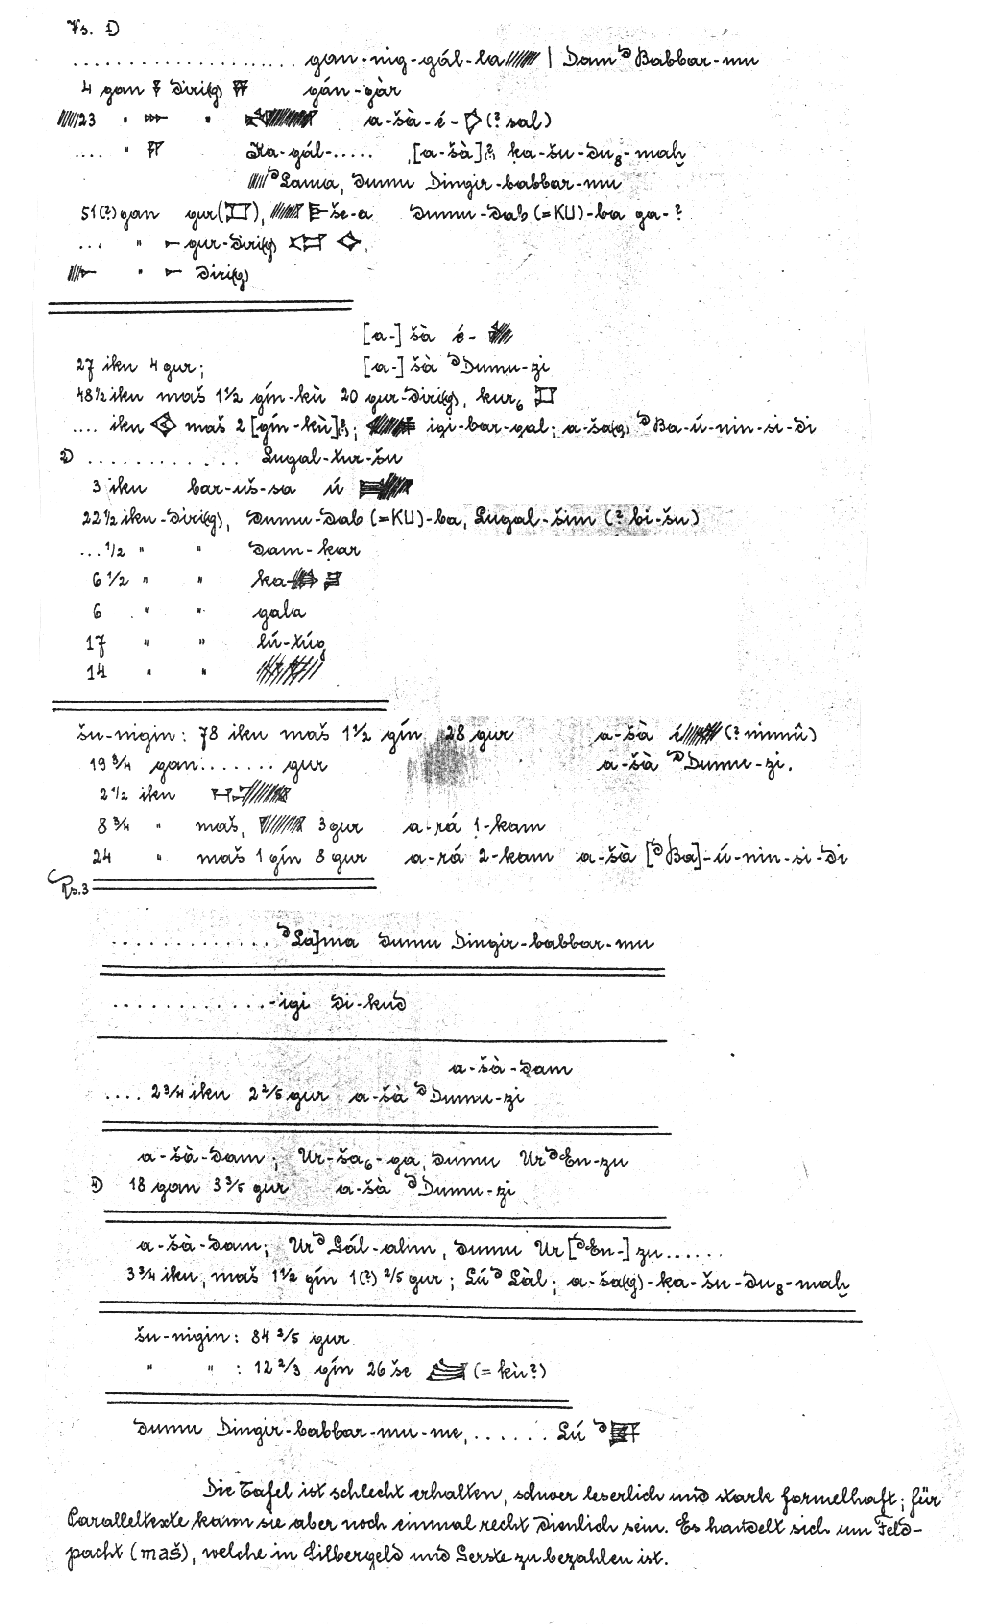 Vs. 1)
..................... gan-nig-gál-la | Dam ᵈBabbar-mu
4 gan diri(g) gán-gàr
23 " " a-šà-é- (? sal)
.... " Ka-gál-..... [a-šà]? ka-šu-du₈-maḫ
ᵈLama, dumu Dingir-babbar-mu
51(?) gan gur( ), še-a dumu-dab(=KU)-ba ga-?
... " gur-diri(g)
" diri(g)
[a-]šà é-
27 iku 4 gur; [a-]šà ᵈDumu-zi
48½ iku maš 1½ gín-kù 20 gur-diri(g), kur₆
.... iku maš 2 [gín-kù]?; igi-bar-gal; a-ša(g) ᵈBa-ú-nin-si-di
2) ............ Lugal-xur-šu
3 iku bar-uš-sa ú
22½ iku-diri(g), dumu-dab(=KU)-ba, Lugal-šim (? bi-šu)
...½ " " dam-kar
6½ " " ka-
6 " " gala
17 " " lú-xúg
14 " "
šu-nigin: 78 iku maš 1½ gín 28 gur a-šà é (? nimnû)
19¾ gan....... gur a-šà ᵈDumu-zi.
2½ iku
8¾ " maš, 3 gur a-rá 1-kam
24 " maš 1 gín 8 gur a-rá 2-kam a-šà [ᵈBa]-ú-nin-si-di
Rs. 3
............. ᵈLa]ma dumu Dingir-babbar-mu
.............-igi di-kud
a-šà-dam
.... 2¾ iku 2²/₅ gur a-šà ᵈDumu-zi
a-šà-dam; Ur-ša₆-ga, dumu Ur ᵈEn-zu
4) 18 gan 3³/₅ gur a-šà ᵈDumu-zi
a-šà-dam; Ur ᵈGál-alim, dumu Ur [ᵈEn-]zu......
3¾ iku, maš 1½ gín 1(?) ²/₅ gur; Lú ᵈLàl; a-ša(g)-ka-šu-du₈-maḫ
šu-nigin: 84 ²/₅ gur
" " : 12 ²/₃ gín 26 še (= kù?)
dumu Dingir-babbar-mu-me, ...... Lú ᵈ
Die Tafel ist schlecht erhalten, schwer leserlich und stark formelhaft; für
Paralleltexte kann sie aber noch einmal recht dienlich sein. Es handelt sich um Feld-
pacht (maš), welche in Silbergeld und Gerste zu bezahlen ist.